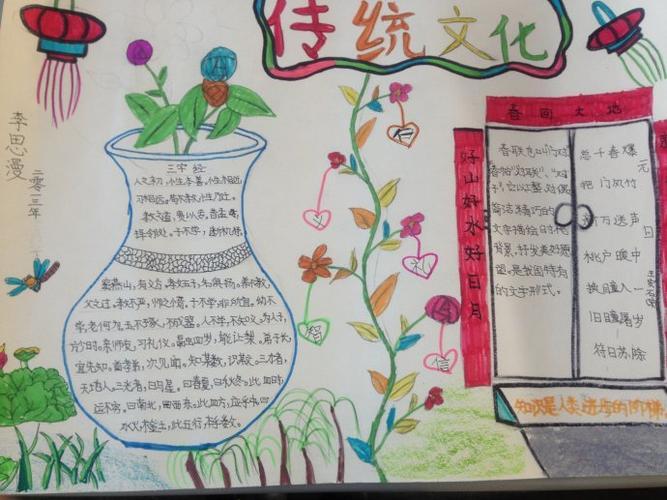 传统文化
李思漫
二零一三年
三字经
人之初,性本善。性相近,
习相远。苟不教,性乃迁。
教之道,贵以专。昔孟母,
择邻处。子不学,断机杼。
窦燕山,有义方。教五子,名俱扬。养不教,
父之过。教不严,师之惰。子不学,非所宜。幼不
学,老何为。玉不琢,不成器。人不学,不知义。为人子,
方少时。亲师友,习礼仪。融四岁,能让梨。弟于长,
宜先知。首孝弟,次见闻。知某数,识某文。三才者,
天地人。三光者,日月星。曰春夏,曰秋冬。此四时,
运不穷。曰南北,曰西东。此四方,应乎中。曰
水火,木金土。此五行,本乎数。
仁
义
礼
智
信
春回大地
好山好水好日月
春联也叫"门对"
"春贴""对联""对
子",它以工整、对偶、
简洁、精巧的文
字描绘时代
背景,抒发美好愿
望,是我国特有
的文学形式。
元日
王安石
爆竹声中一岁除
春风送暖入屠苏
千门万户曈曈日
总把新桃换旧符
知识是人类进步的阶梯